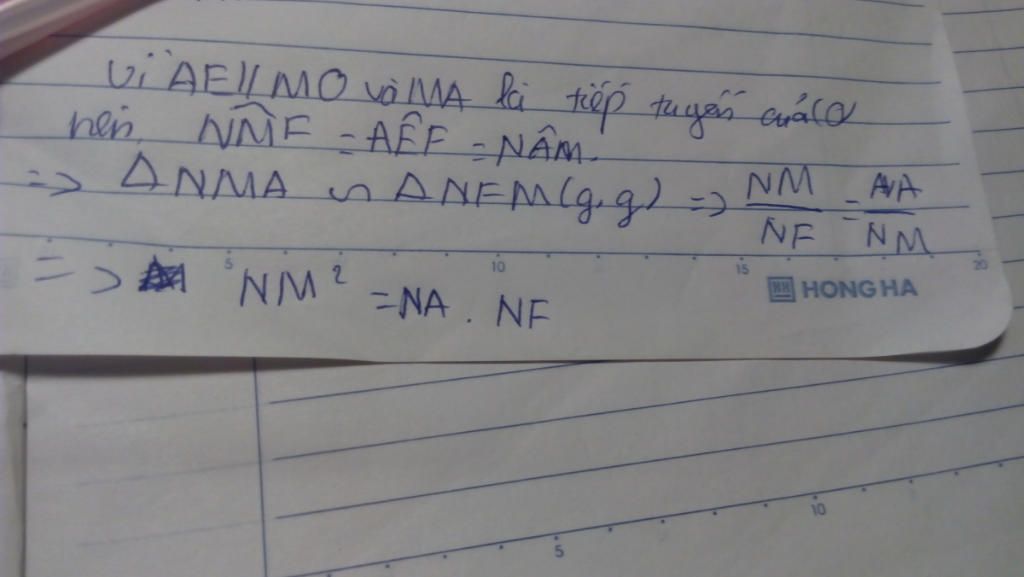 Vì AE // MO và MA là tiếp tuyến của (O
nên NMF = AÊF = NÂM.
=> Δ NMA ∽ Δ NFM (g.g) => NM/NF = NA/NM
=> NM² = NA . NF
5 10 15 20
HONG HA
10
5